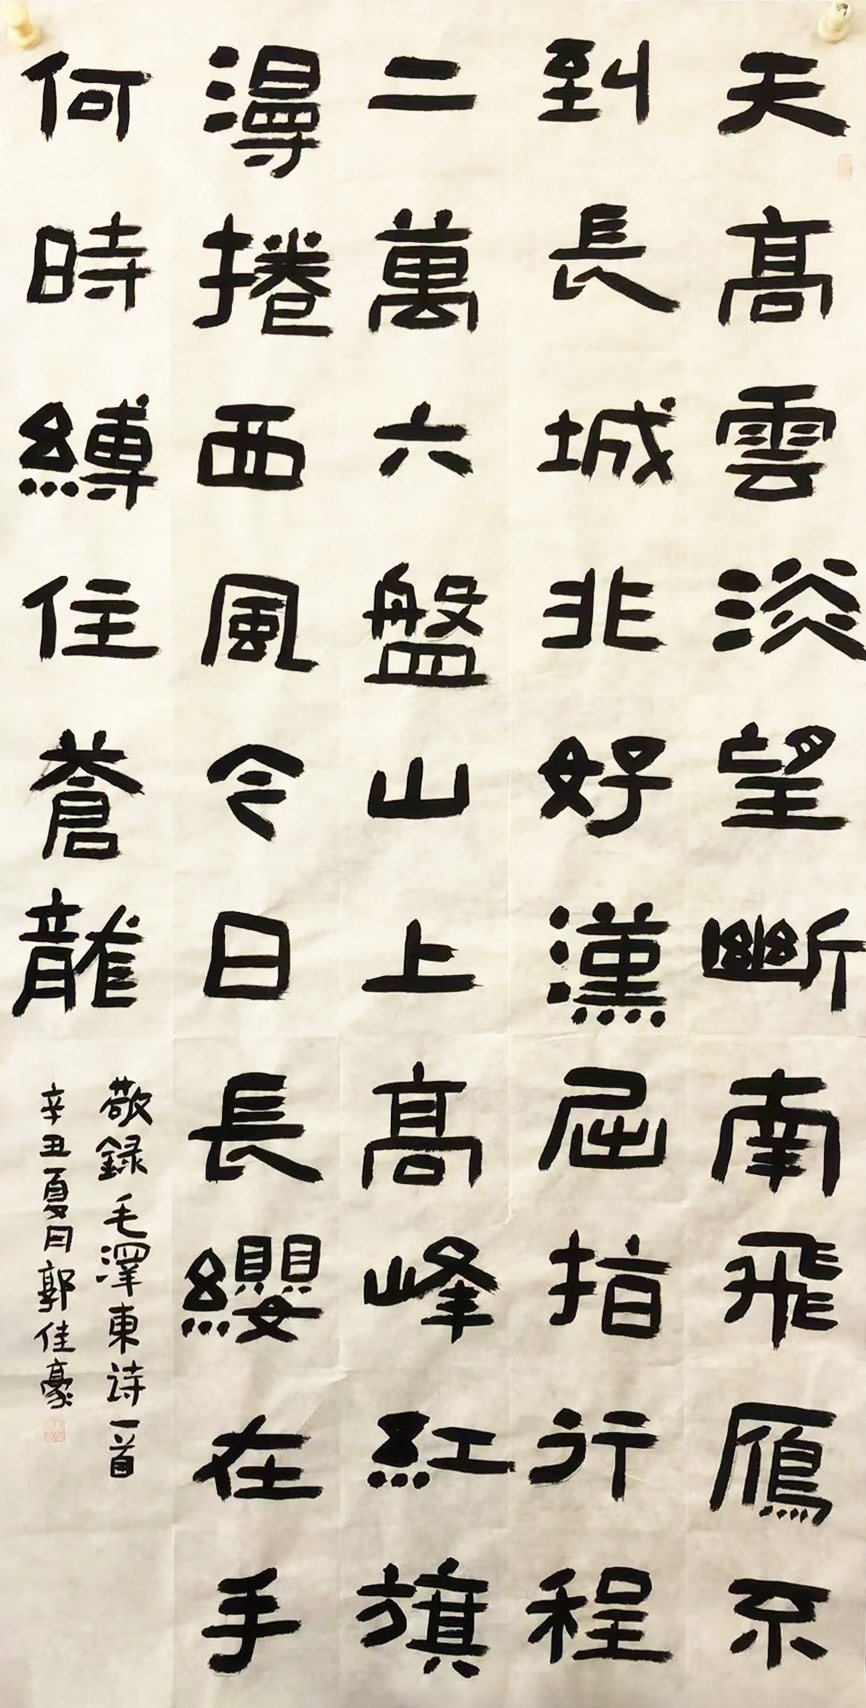 天髙雲淡望斷南飛鴈不
到長城非好漢屈指行程
二萬六盤山上髙峰紅旗
漫捲西風今日長纓在手
何時縛住蒼龍
敬録毛澤東诗一首
辛丑夏月郭佳豪